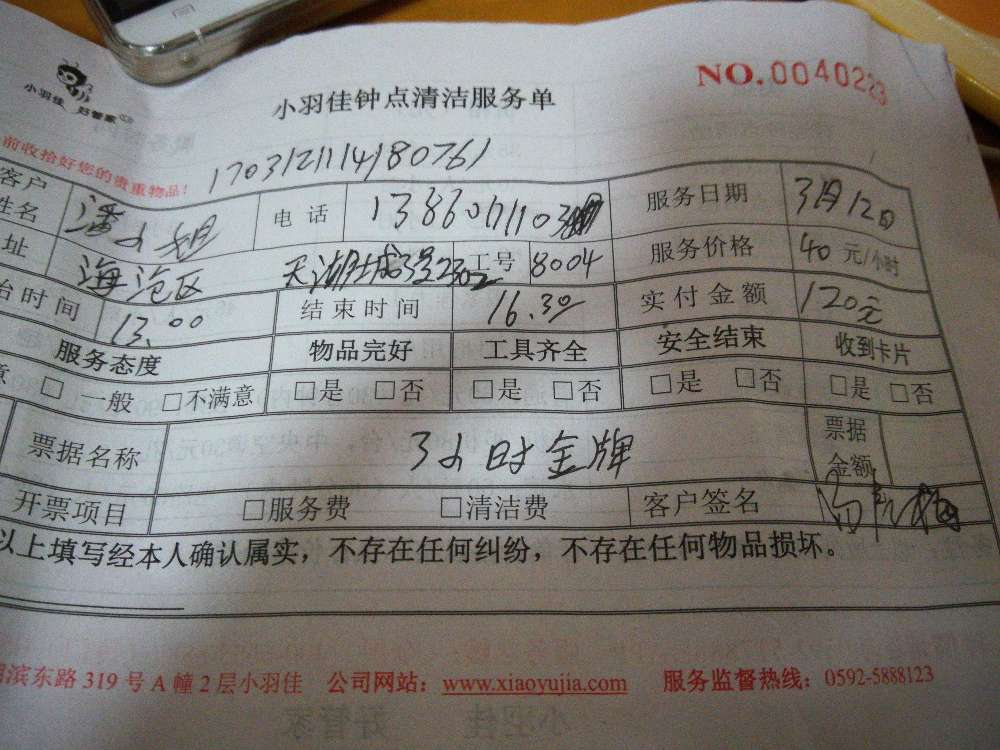 小羽佳 好管家
NO. 0040223
小羽佳钟点清洁服务单
前收拾好您的贵重物品！
1703121114180761
客户姓名 潘小姐 电话 服务日期 3月12日
址 海沧区 天湖城 2302 工号 8004 服务价格 40 元/小时
台时间 13.00 结束时间 16.30 实付金额 120元
服务态度 物品完好 工具齐全 安全结束 收到卡片
意 □ 一般 □不满意 □是 □否 □是 □否 □是 □否 □是 □否
票据名称 3小时金牌 票据金额
开票项目 □服务费 □清洁费 客户签名
以上填写经本人确认属实，不存在任何纠纷，不存在任何物品损坏。
滨东路 319 号 A 幢 2 层小羽佳 公司网站：www.xiaoyujia.com 服务监督热线：0592-5888123
小羽佳 好管家